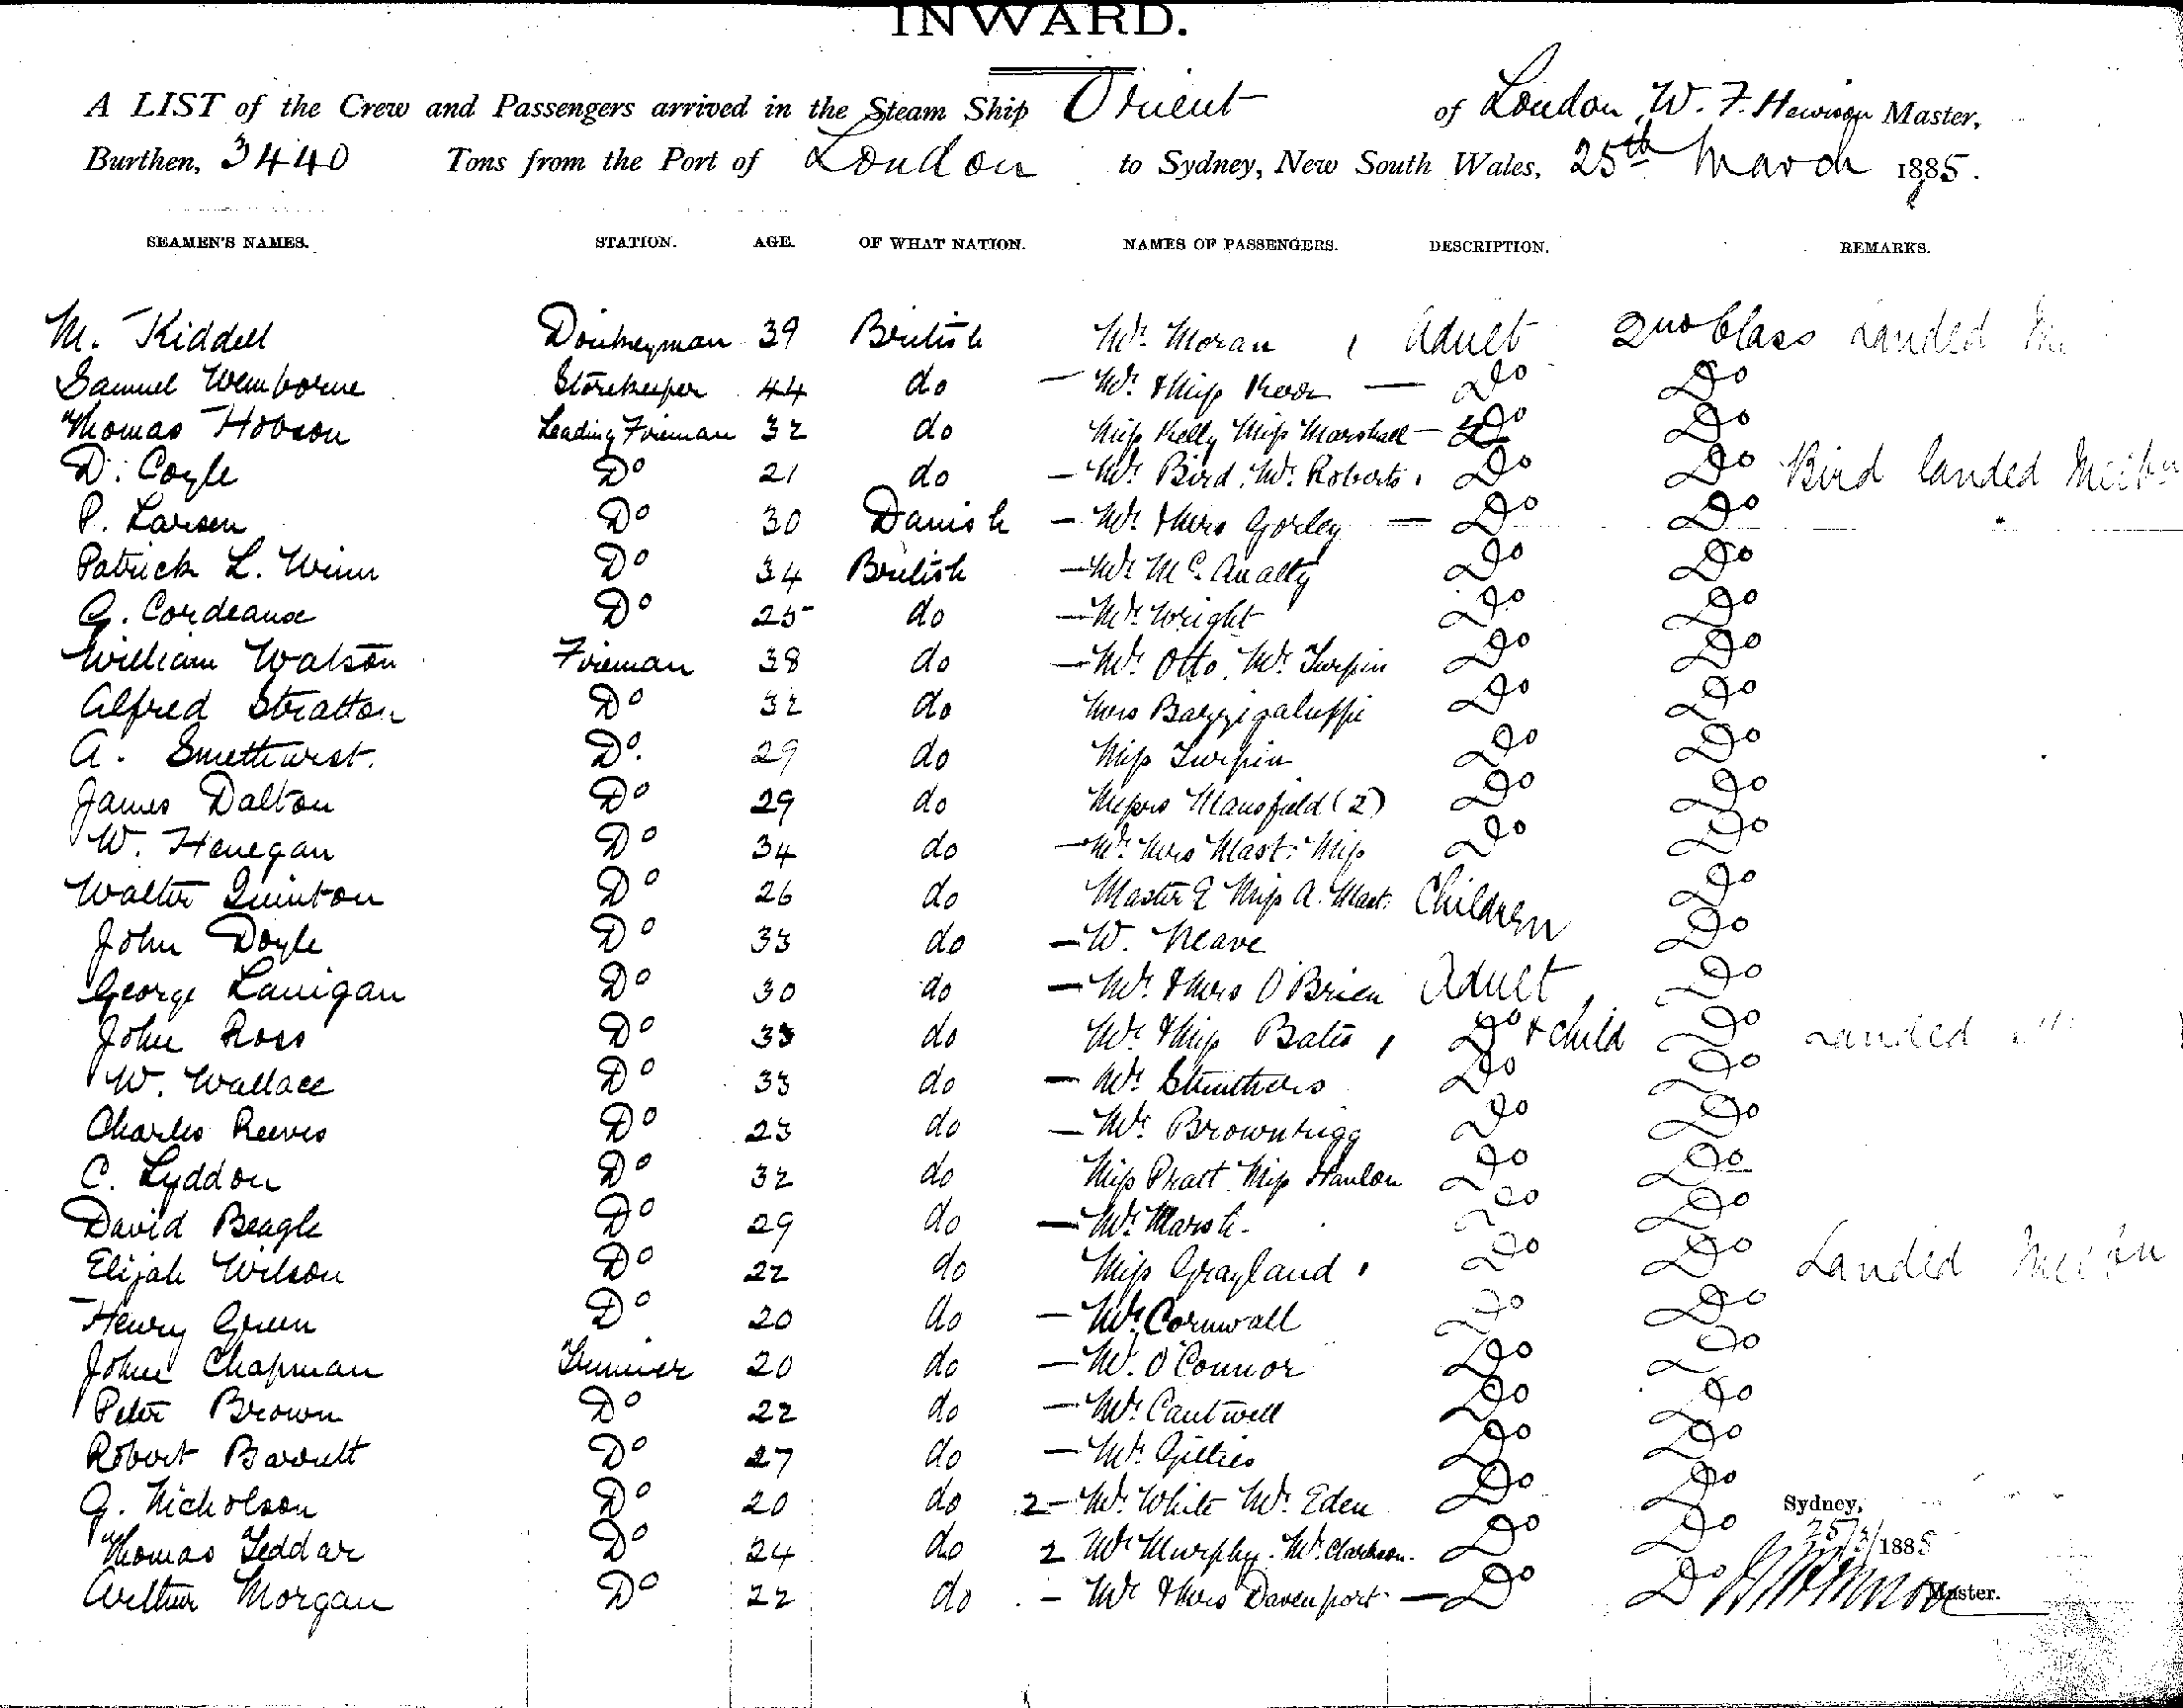 INWARD.
A LIST of the Crew and Passengers arrived in the Steam Ship Orient of London, W. F. Hewison Master,
Burthen, 3440 Tons from the Port of London to Sydney, New South Wales, 25th March 1885.
SEAMEN'S NAMES. STATION. AGE. OF WHAT NATION. NAMES OF PASSENGERS. DESCRIPTION. REMARKS.
M. Kiddell Donkeyman 39 British Mr. Moran 1 Adult 2nd Class Landed
Samuel Wemborne Storekeeper 44 do — Mr. & Miss — Do Do
Thomas Hobson Leading Fireman 32 do Miss Kelly Miss Marshall — Do Do
D. Coyle Do 21 do — Mr. Bird, Mr. Roberts Do Do Bird landed
P. Larsen Do 30 Danish — Mr. & Mrs Gorley — Do Do
Patrick L. Winn Do 34 British — Mr. McAnalty Do Do
G. Cordeaux Do 25 do — Mr. Wright Do Do
William Watson Fireman 38 do — Mr. Otto, Mr. Turpin Do Do
Alfred Stratton Do 32 do Mrs Bazzigaluppi Do Do
A. Smethurst. Do. 29 do Miss Turpin Do Do
James Dalton Do 29 do Messrs Mansfield (2) Do Do
W. Henegan Do 34 do — Mr. Mrs Mast. Miss Do Do
Walter Quinton Do 26 do Master & Miss A. Mast. Children Do
John Doyle Do 33 do — W. Neave Do
George Lanigan Do 30 do — Mr. & Mrs O'Brien Adult Do
John Ross Do 33 do Mr. & Miss Bates, Do & child Do Landed
W. Wallace Do 33 do — Mr. Struthers Do Do
Charles Reeves Do 23 do — Mr. Brownrigg Do Do
C. Lyddon Do 32 do Miss Pratt, Miss Hanlon Do Do
David Beagle Do 29 do — Mr. Marsh. Do Do
Elijah Wilson Do 22 do Miss Grayland Do Do Landed
Henry Green Do 20 do — Mr. Cornwall Do Do
John Chapman Trimmer 20 do — Mr. O'Connor Do Do
Peter Brown Do 22 do — Mr. Cantwell Do Do
Robert Barrett Do 27 do — Mr. Gillies Do Do
G. Nicholson Do 20 do 2 — Mr. White Mr. Eden Do Do Sydney,
Thomas Teddar Do 24 do 2 Mr. Murphy. Mr. Clarkson. Do Do 25/3/1885
Arthur Morgan Do 22 do — Mr. & Mrs Davenport — Do Do Master.